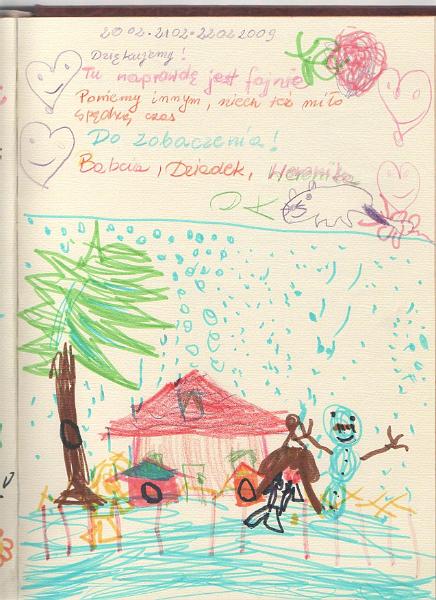 20.02-21.02-22.02 2009
Dziękujemy!
Tu naprawdę jest fajnie
Powiemy innym, niech też miło
spędzą czas
Do zobaczenia!
Babcia, Dziadek, Weronika
OK